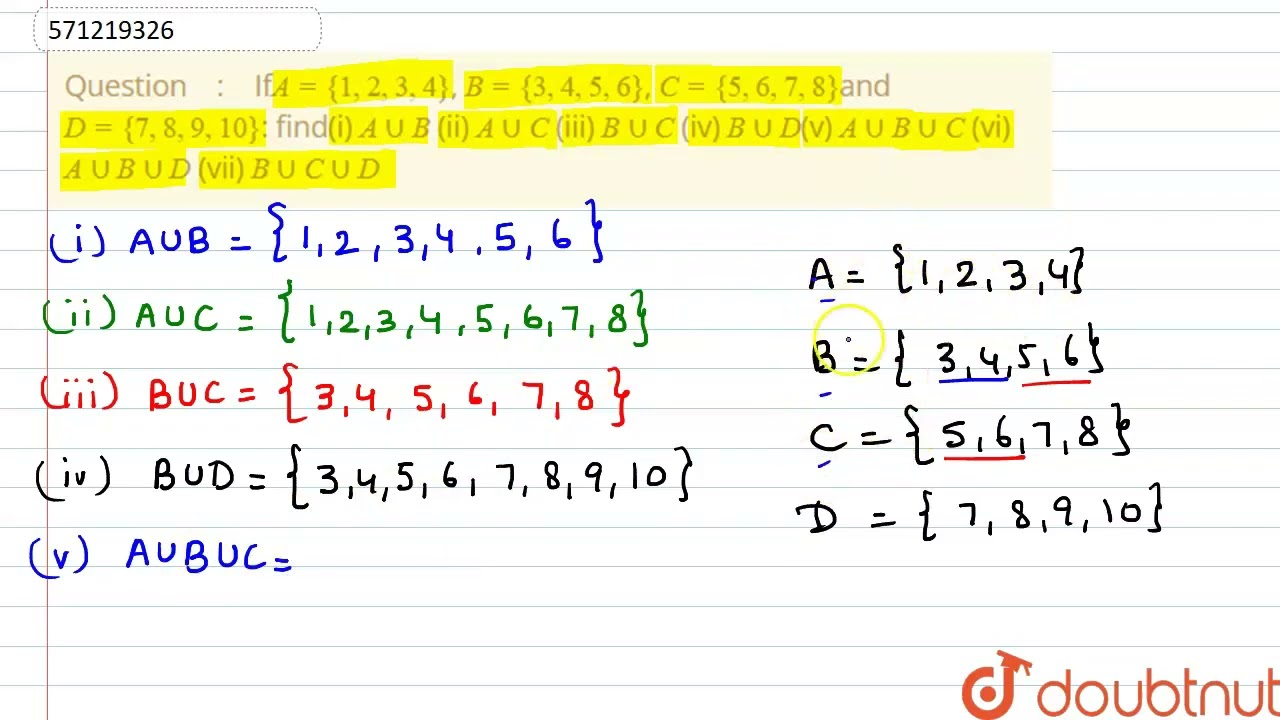 571219326
Question : If A = {1, 2, 3, 4}, B = {3, 4, 5, 6}, C = {5, 6, 7, 8} and
D = {7, 8, 9, 10}: find(i) A ∪ B (ii) A ∪ C (iii) B ∪ C (iv) B ∪ D(v) A ∪ B ∪ C (vi)
A ∪ B ∪ D (vii) B ∪ C ∪ D
(i) A∪B = {1,2,3,4,5,6}
(ii) A∪C = {1,2,3,4,5,6,7,8}
(iii) B∪C = {3,4,5,6,7,8}
(iv) B∪D = {3,4,5,6,7,8,9,10}
(v) A∪B∪C =
A = {1,2,3,4}
B = {3,4,5,6}
C = {5,6,7,8}
D = {7,8,9,10}
doubtnut